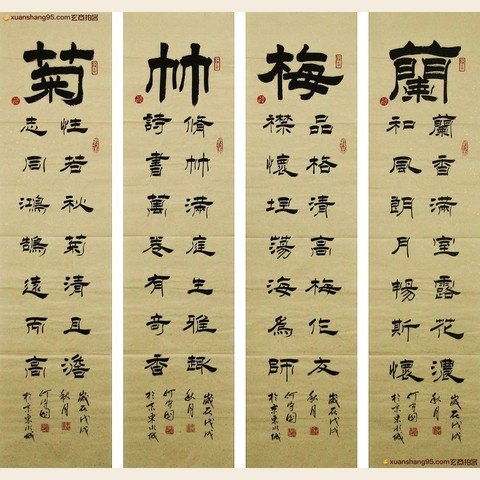 xuanshang95.com
蘭
蘭香滿室露花濃
和風朗月暢斯懷
歲在戊戌
秋月
於京東小城
梅
品格清高梅作友
襟懷坦蕩海為師
歲在戊戌
秋月
於京東小城
竹
脩竹滿庭生雅趣
詩書萬卷有奇香
歲在戊戌
秋月
於京東小城
菊
性若秋菊清且澹
志同鴻鵠遠而高
歲在戊戌
秋月
於京東小城
xuanshang95.com